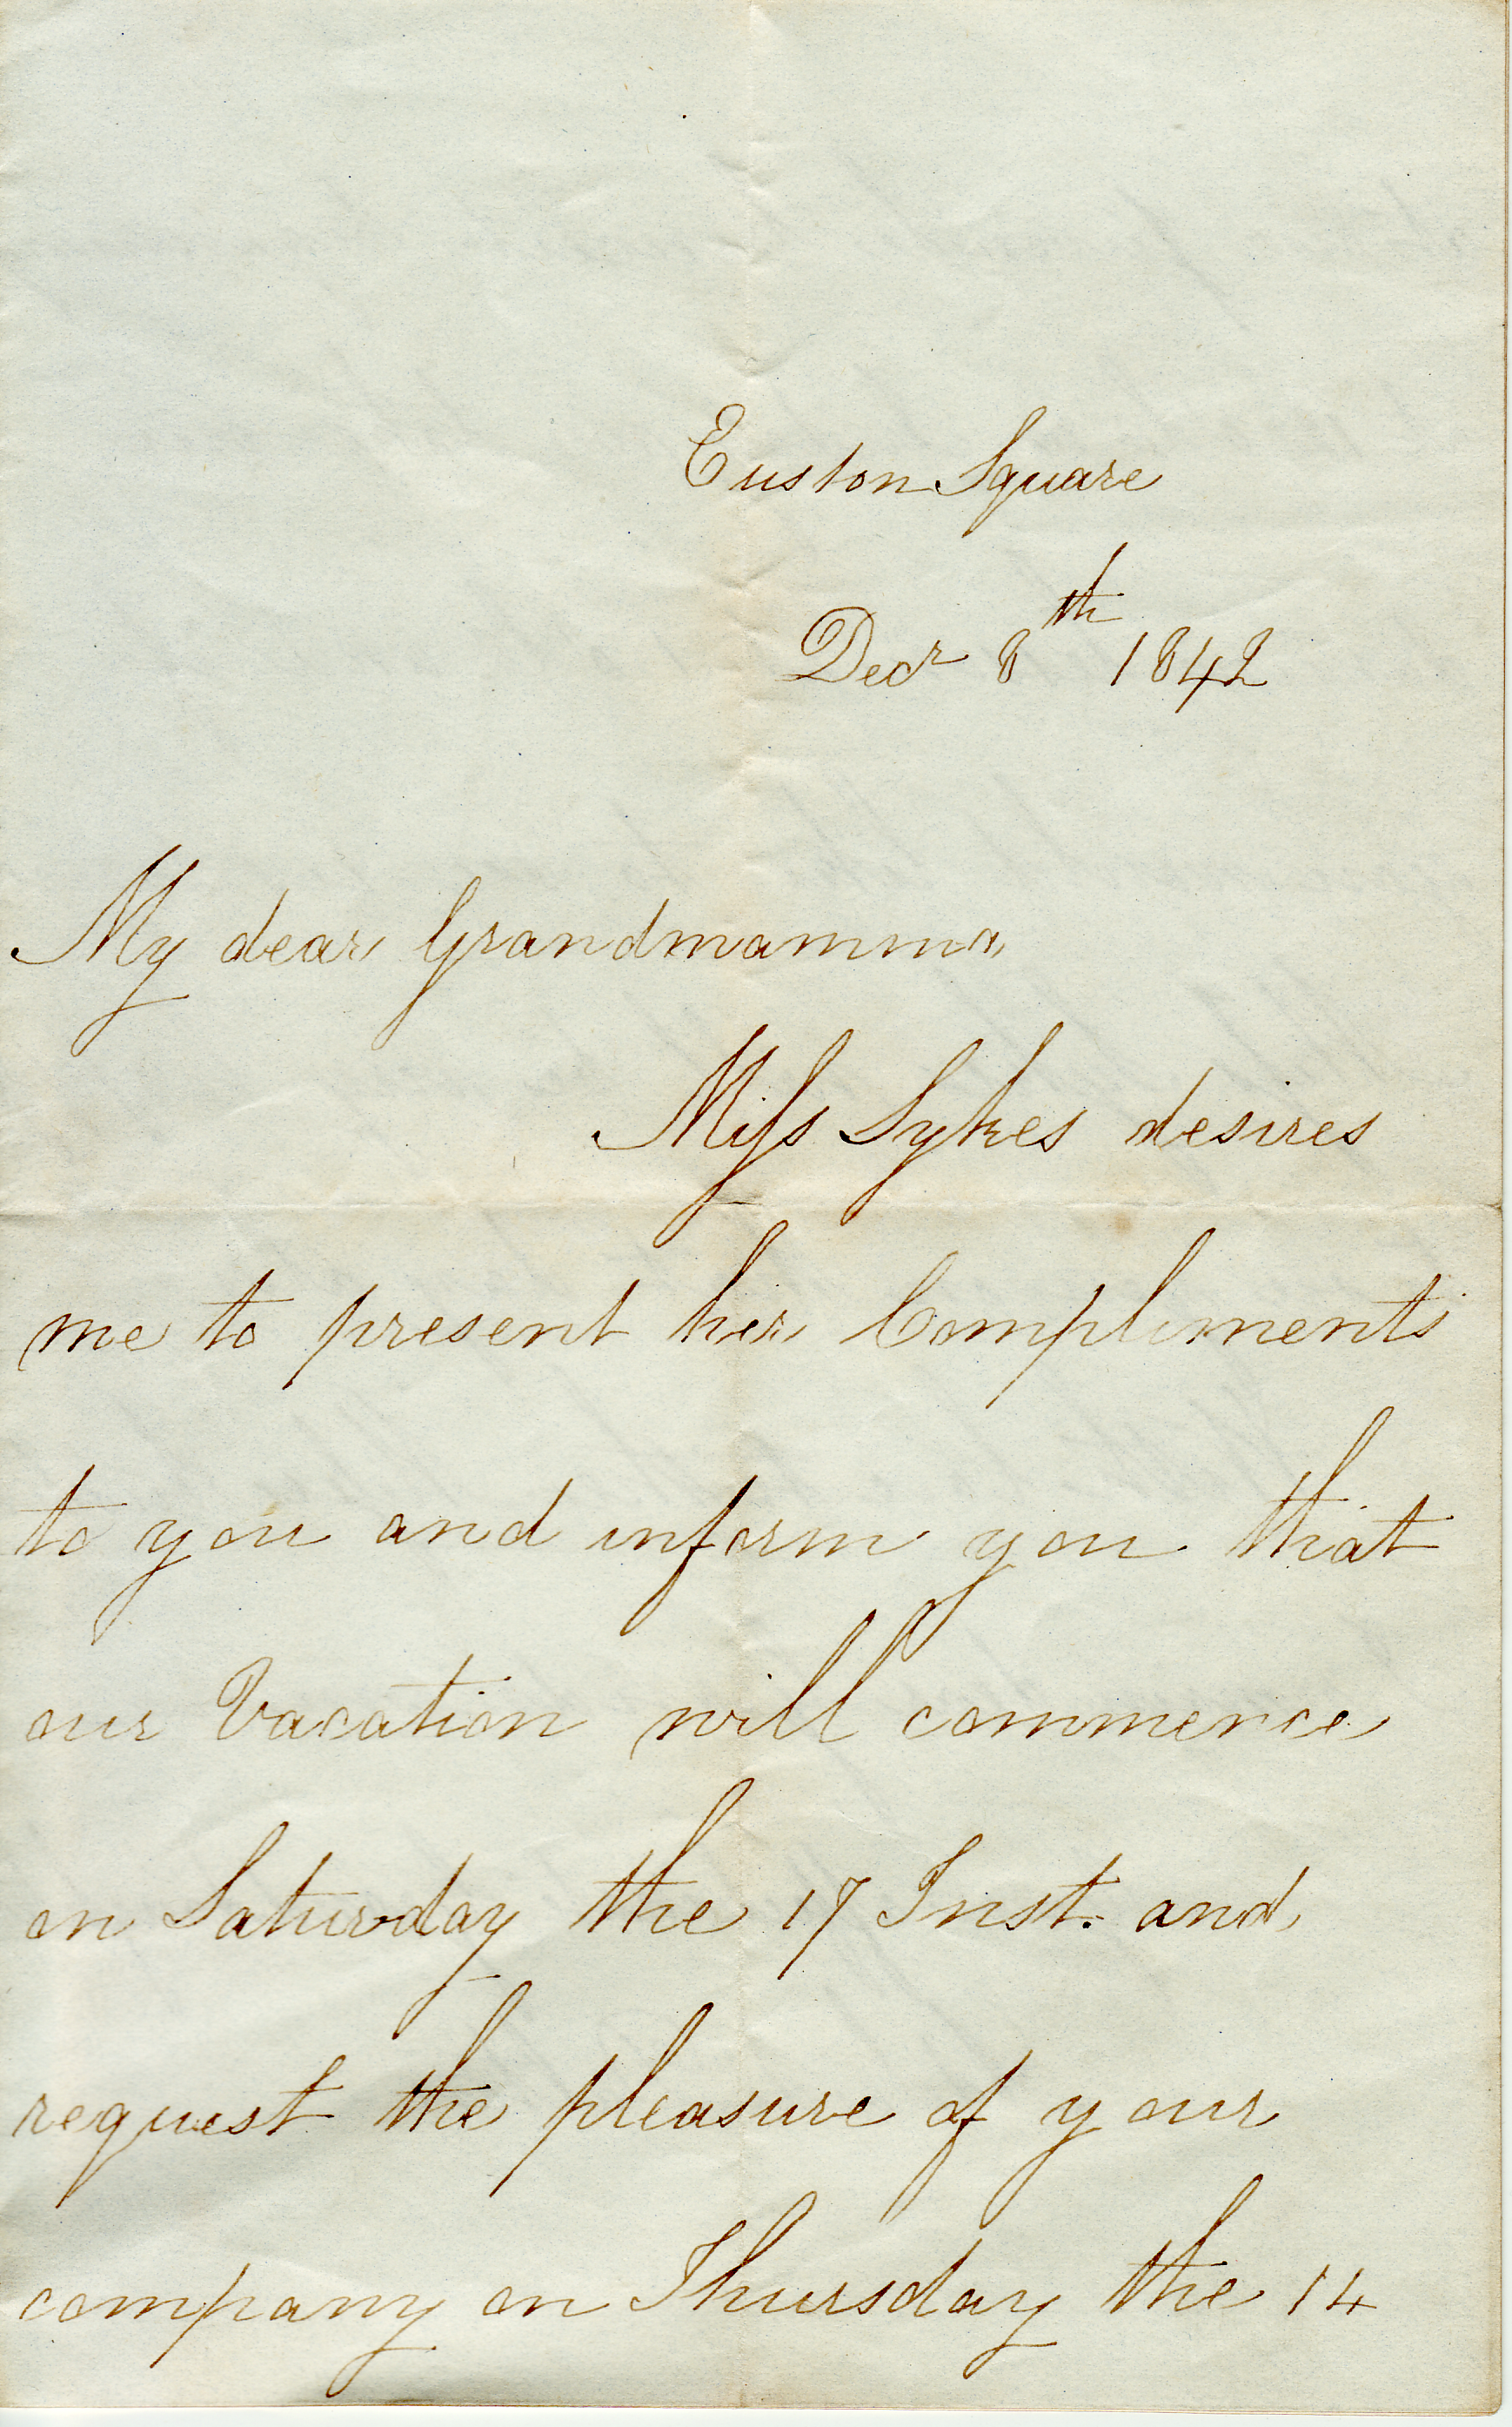 Euston Square
Decr 8th 1842
My dear Grandmamma
Miſs Sykes desires
me to present her Compliments
to you and inform you that
our Vacation will commence
on Saturday the 17 Inst. and
request the pleasure of your
company on Thursday the 14